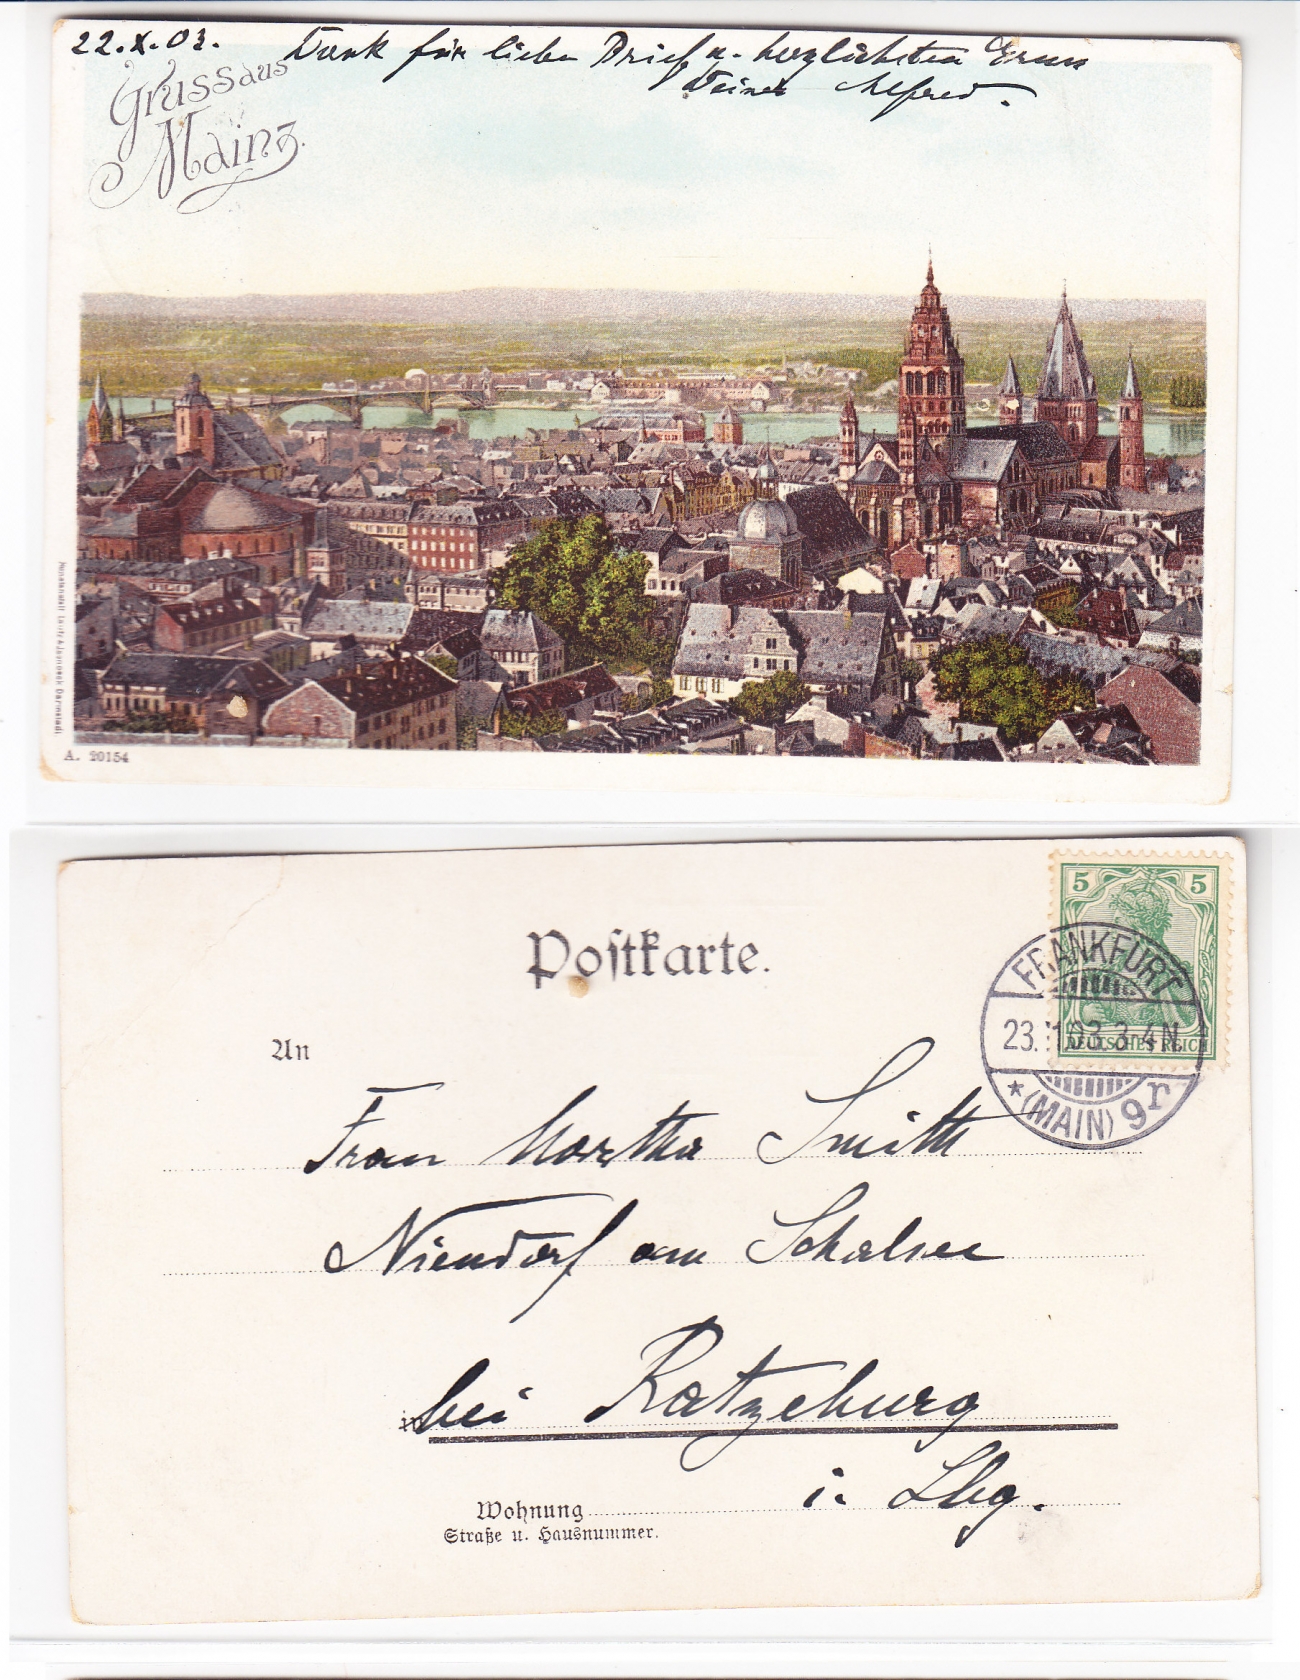 22.X.03. Dank für lieben Brief u. herzlichsten Gruss
Deines Alfred.
Gruss aus
Mainz.
Kunstanstalt Lautz & Isenbeck Darmstadt
A. 20154
Postkarte.
5 5
DEUTSCHES REICH
FRANKFURT
23. 03 3-4N.
* (MAIN) 9r
An
Frau Martha Smith
Niendorf am Schalsee
in bei Ratzeburg
i. Lbg.
Wohnung
Straße u. Hausnummer.